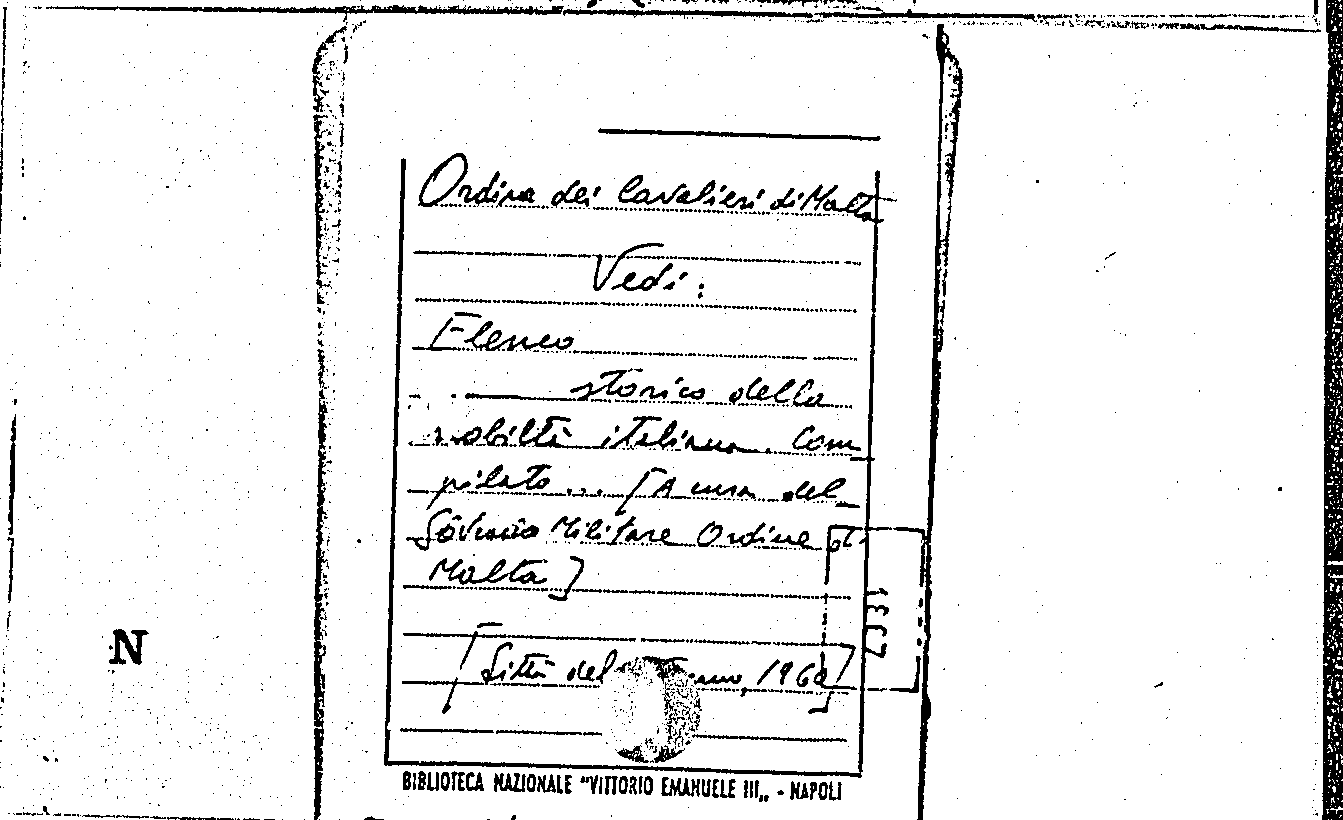 Ordine dei Cavalieri di Malta
Vedi:
Elenco
storico della
nobiltà italiana. Com_
pilato... [A cura del
Sovrano Militare Ordine di
Malta]
[Città del 1960]
1337
N
BIBLIOTECA NAZIONALE "VITTORIO EMANUELE III„ - NAPOLI